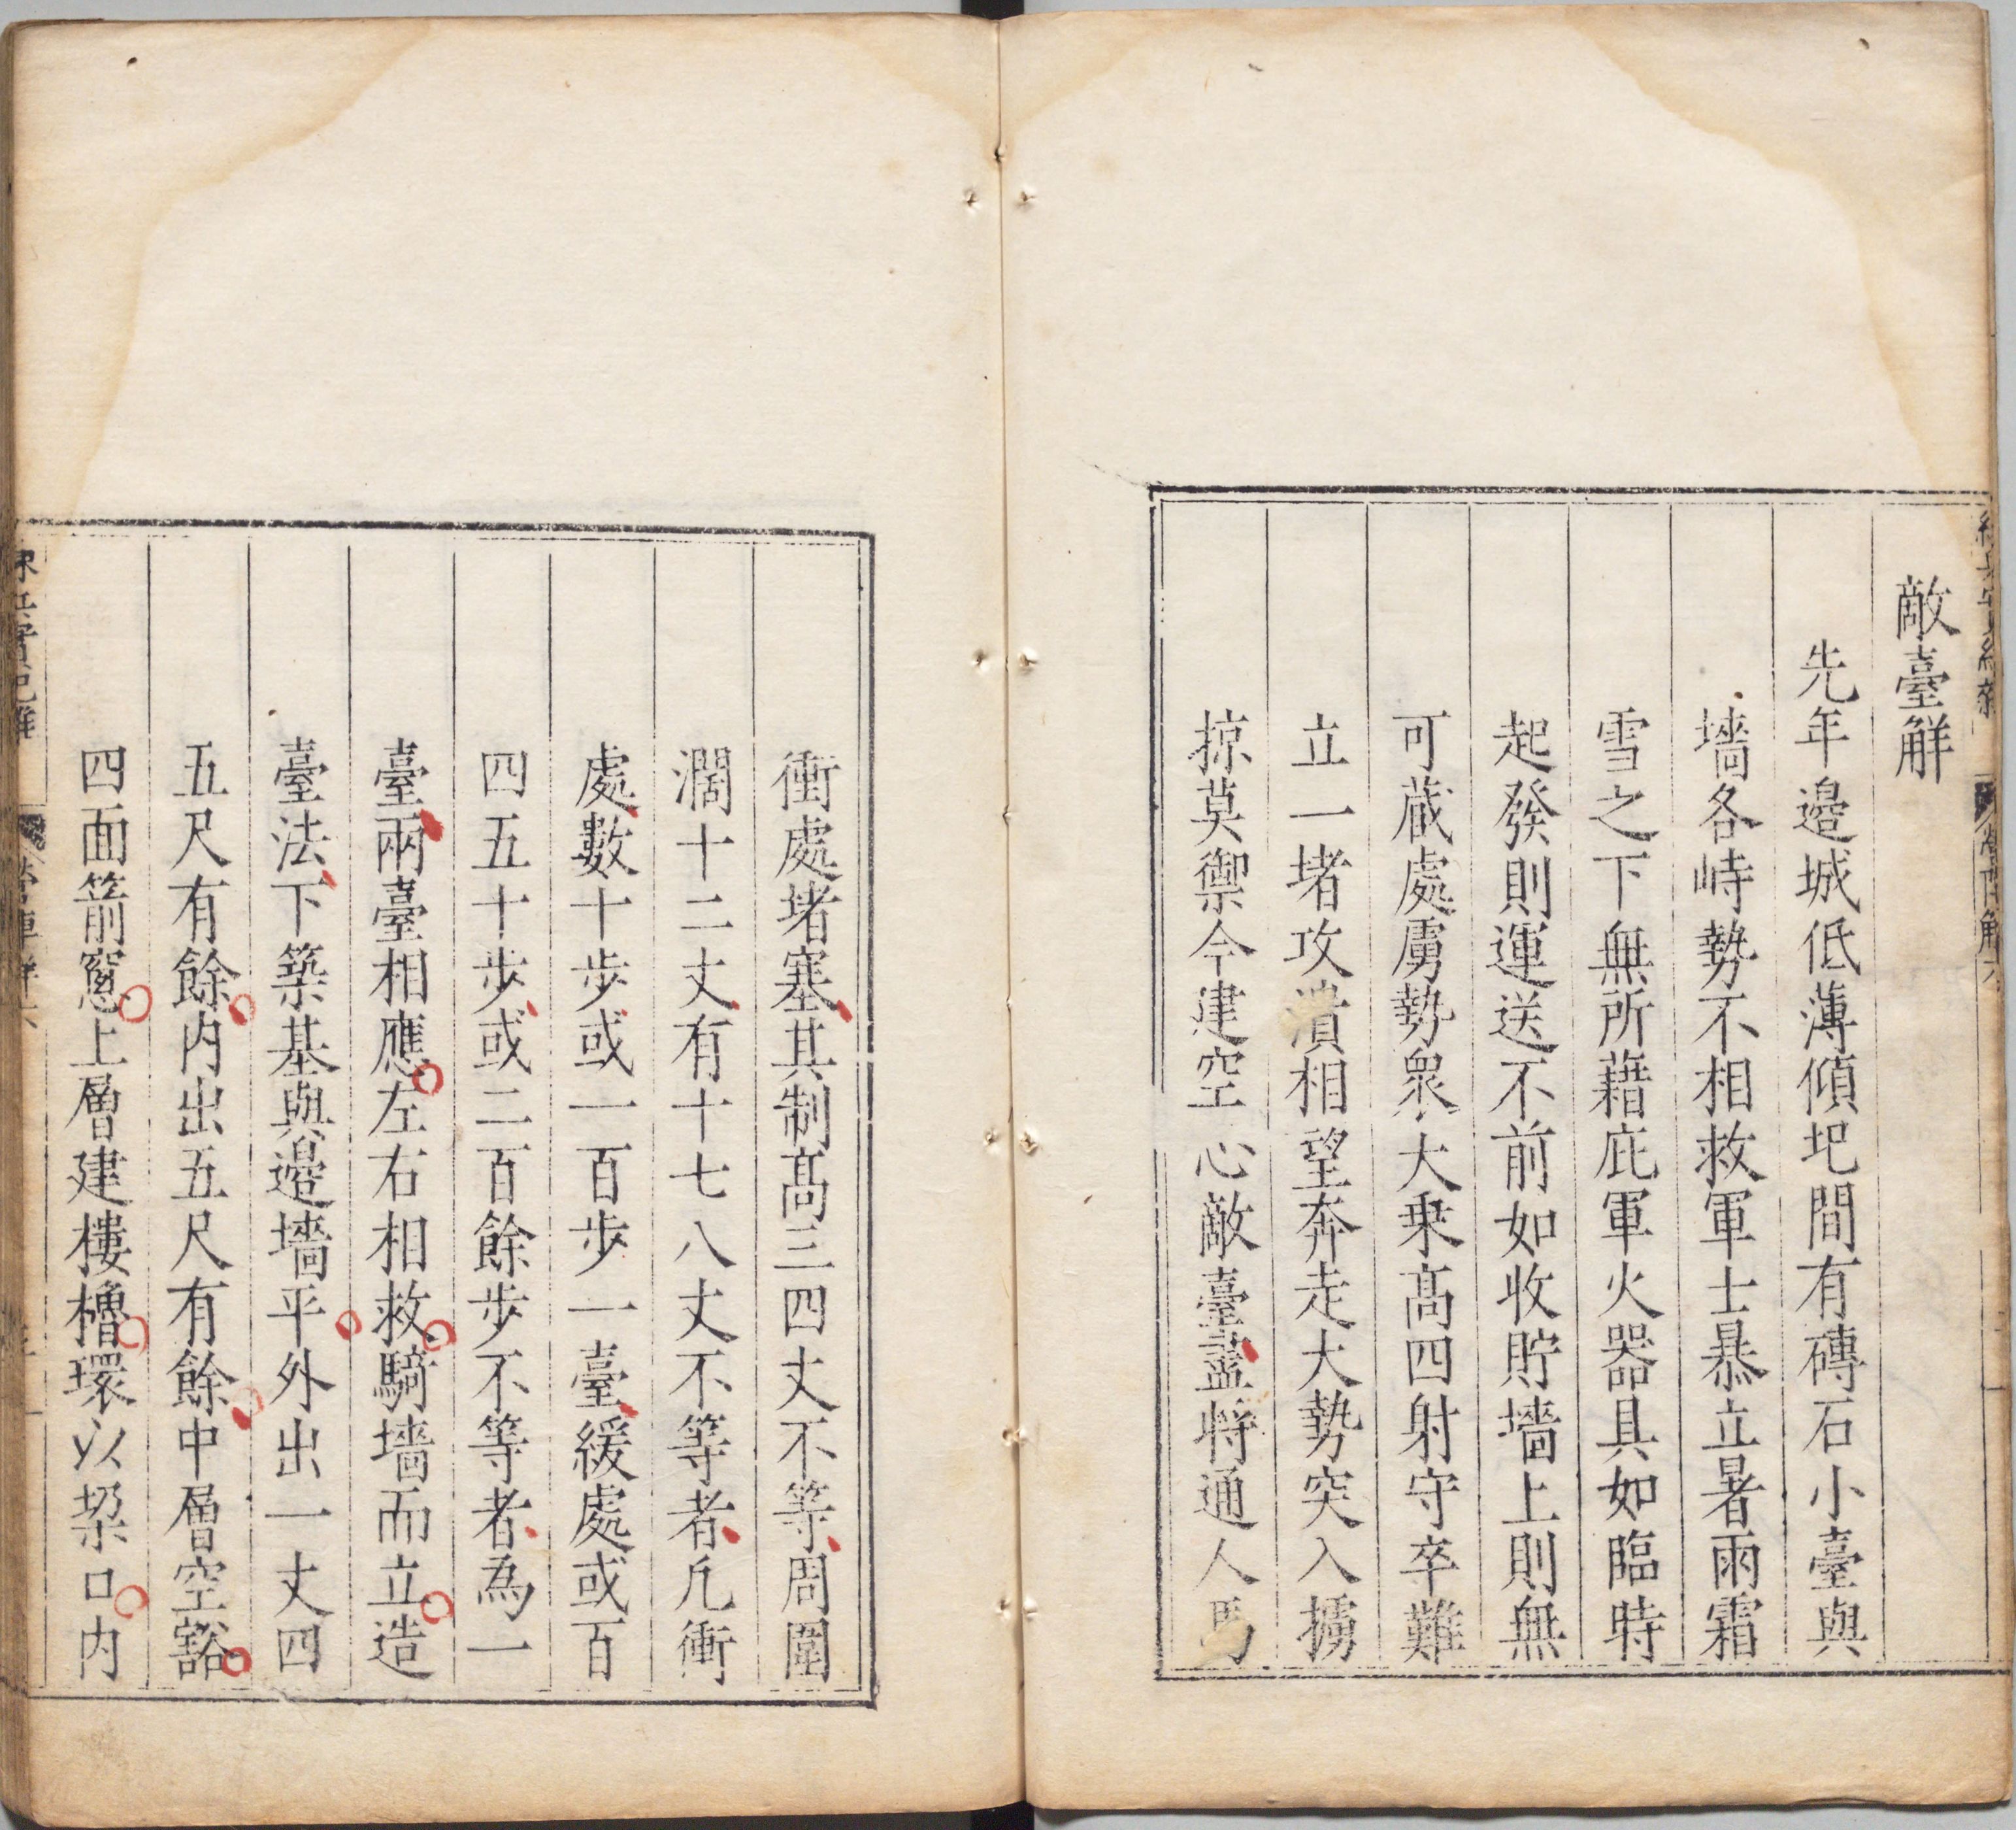 敵臺觧
先年邉城低薄傾圮間有磚石小臺與
墻各峙勢不相救軍士暴立暑雨霜
雪之下無所藉庇軍火器具如臨時
起發則運送不前如收貯墻上則無
可蔵處虜勢衆大乗髙四射守卒難
立一堵攻潰相望奔走大勢突入擄
掠莫禦今建空心敵臺盡将通人馬
衝處堵塞其制髙三四丈不等周圍
濶十二丈有十七八丈不等者凢衝
處數十步或一百步一臺緩處或百
四五十步或二百餘步不等者為一
臺兩臺相應左右相救騎墻而立造
臺法下築基與邉墻平外出一丈四
五尺有餘内出五尺有餘中層空豁
四面箭窓上層建樓櫓環以垜口内